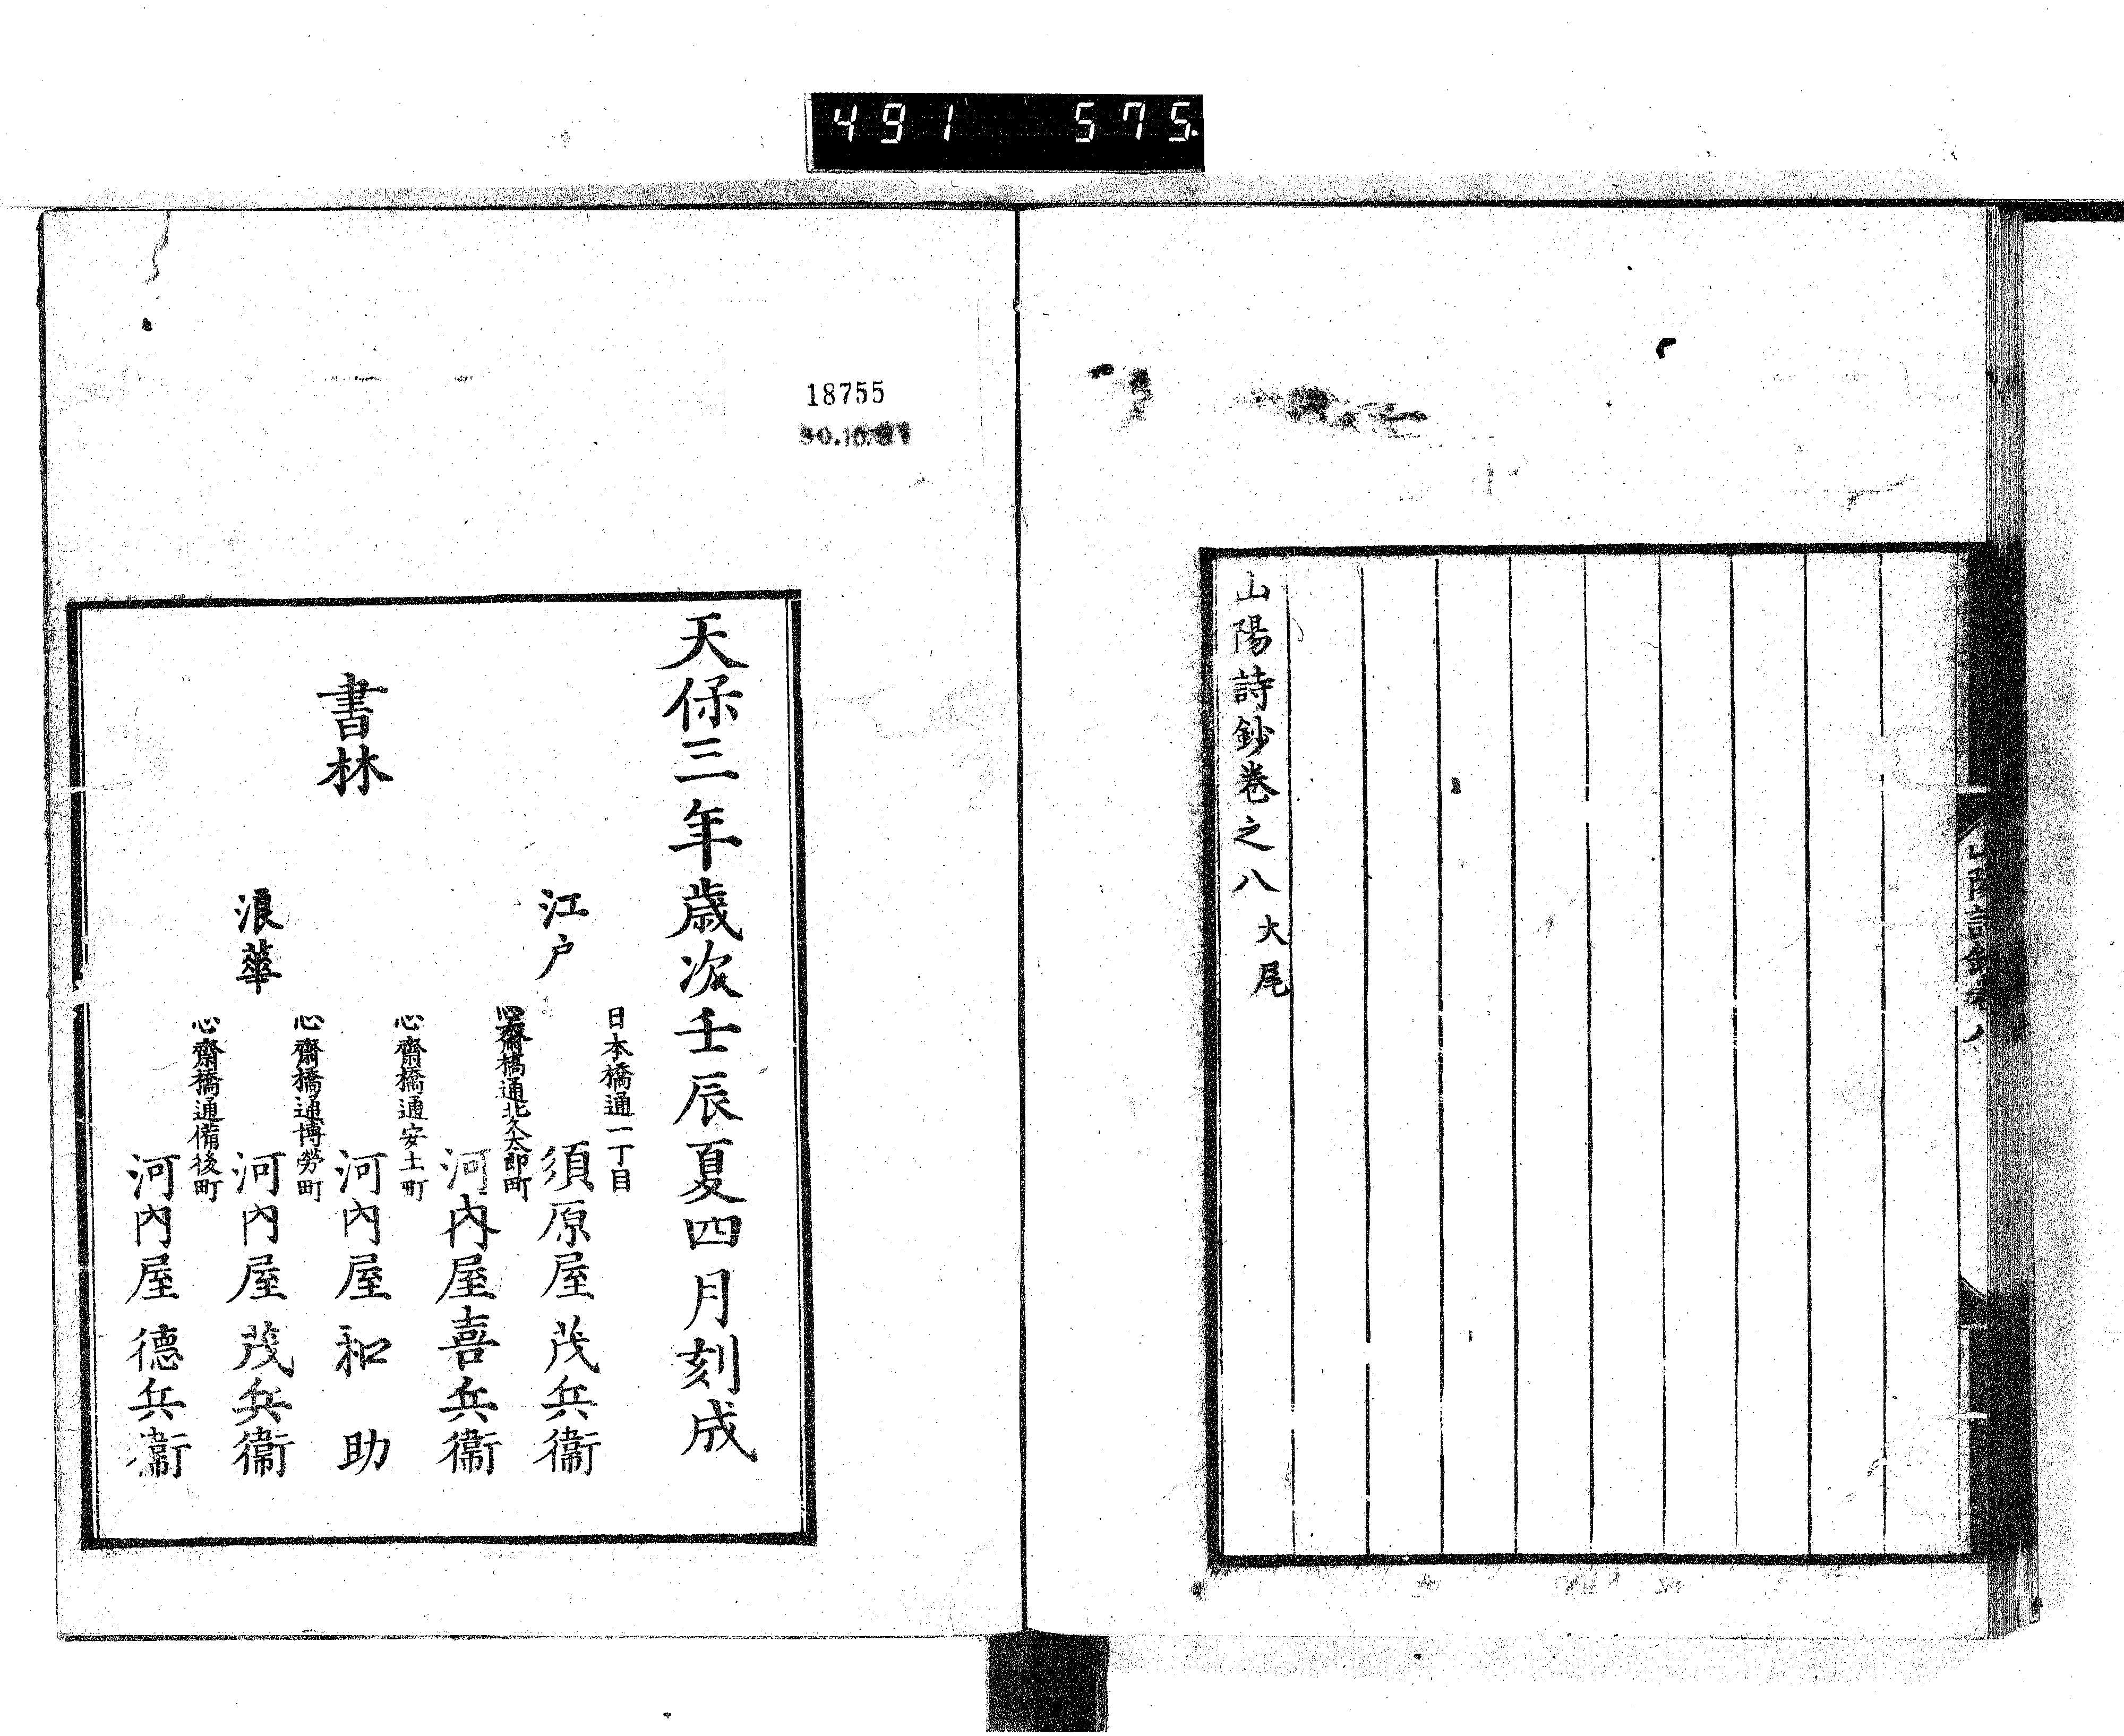 491 575.
山陽詩鈔卷之八大尾
山陽詩鈔卷八
18755
天保三年歲次壬辰夏四月刻成
書林
江戶
日本橋通一丁目
須原屋茂兵衞
心齋橋通北久太郎町
河內屋喜兵衞
心齋橋通安土町
河內屋和助
浪華
心齋橋通博勞町
河內屋茂兵衞
心齋橋通備後町
河內屋德兵衞